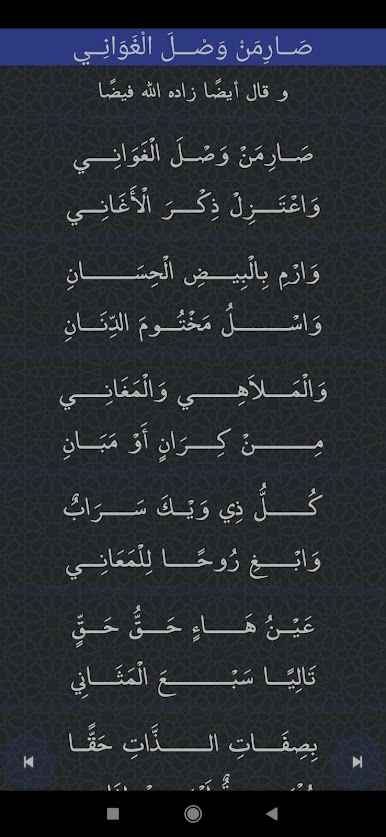 صَارِمَنْ وَصْلَ الْغَوَانِي
و قال أيضًا زاده الله فيضًا
صَارِمَنْ وَصْلَ الْغَوَانِي
وَاعْتَزِلْ ذِكْرَ الْأَغَانِي
وَارْمِ بِالْبِيضِ الْحِسَانِ
وَاسْلُ مَخْتُومَ الدِّنَانِ
وَالْمَلَاهِي وَالْمَغَانِي
مِنْ كِرَانٍ أَوْ مَبَانِ
كُلُّ ذِي وَيْكَ سَرَابٌ
وَابْغِ رُوحًا لِلْمَعَانِي
عَيْنُ هَاءٍ حَقُّ حَقٍّ
تَالِيًا سَبْعَ الْمَثَانِي
بِصِفَاتِ الذَّاتِ حَقًّا